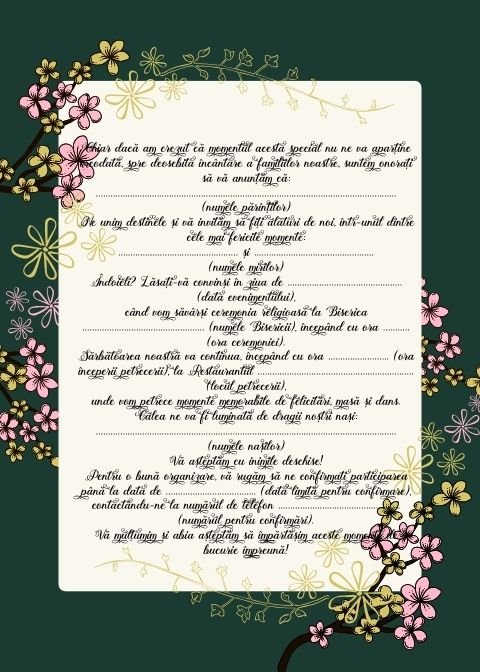 Chiar dacă am crezut că momentul acesta special nu ne va aparține
niciodată, spre deosebită încântare a familiilor noastre, suntem onorați
să vă anunțăm că:
................................................
(numele părinților)
Ne unim destinele și vă invităm să fiți alături de noi, într-unul dintre
cele mai fericite momente:
.................... și ....................
(numele mirilor)
Îndoieli? Lăsați-vă convinși în ziua de ....................
(data evenimentului),
când vom săvârși ceremonia religioasă la Biserica
.................... (numele Bisericii), începând cu ora ..........
(ora ceremoniei).
Sărbătoarea noastră va continua, începând cu ora .................... (ora
începerii petrecerii), la Restaurantul ....................
(locul petrecerii),
unde vom petrece momente memorabile de felicitări, masă și dans.
Calea ne va fi luminată de dragii noștri nași:
................................................
(numele nașilor)
Vă așteptăm cu inimile deschise!
Pentru o bună organizare, vă rugăm să ne confirmați participarea
până la data de .................... (data limită pentru confirmare),
contactându-ne la numărul de telefon ....................
(numărul pentru confirmări).
Vă mulțumim și abia așteptăm să împărtășim aceste momente de
bucurie împreună!